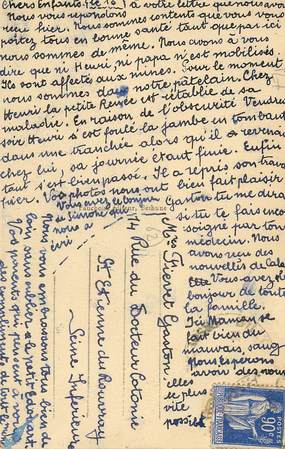 Chers Enfants
Nous vous répondons à votre lettre que nous avons
reçu hier. Nous sommes contents que vous vous
portiez tous en bonne santé tant que par ici
nous sommes de même. Nous avons à vous
dire que ni Henri, ni papa n'est mobilisés.
Ils sont affectés aux mines. Pour le moment
nous sommes dans notre Chez
Henri la petite Renée est rétablie de sa
maladie. En raison de l'obscurité Vendredi
soir Henri s'est foulé la jambe en tombant
dans une tranchée alors qu'il revenait
chez lui, sa journée étant finie. Enfin
tout s'est bien passé. Il a repris son travail
hier. Vos photos nous ont bien fait plaisir
Vous avez le bonjour
de Simone qui
nous a
écrit
Gaston tu me diras
si tu te fais encore
soigné par ton
médecin. Nous
avons reçu des
nouvelles de
Vous avez le
bonjour de toute
la famille.
Ici Maman se
fait bien du
mauvais sang
Nous espérons
avoir des nou-
velles
le plus
vite
possible
Mr Gaston
14 Rue du Docteur Cotonie
St Etienne du Rouvray
Seine Inférieure
Nous vous embrassons tous bien de
loin sans oublier le petit Edouard.
Vos parents qui pensent à vous
POSTES
90c